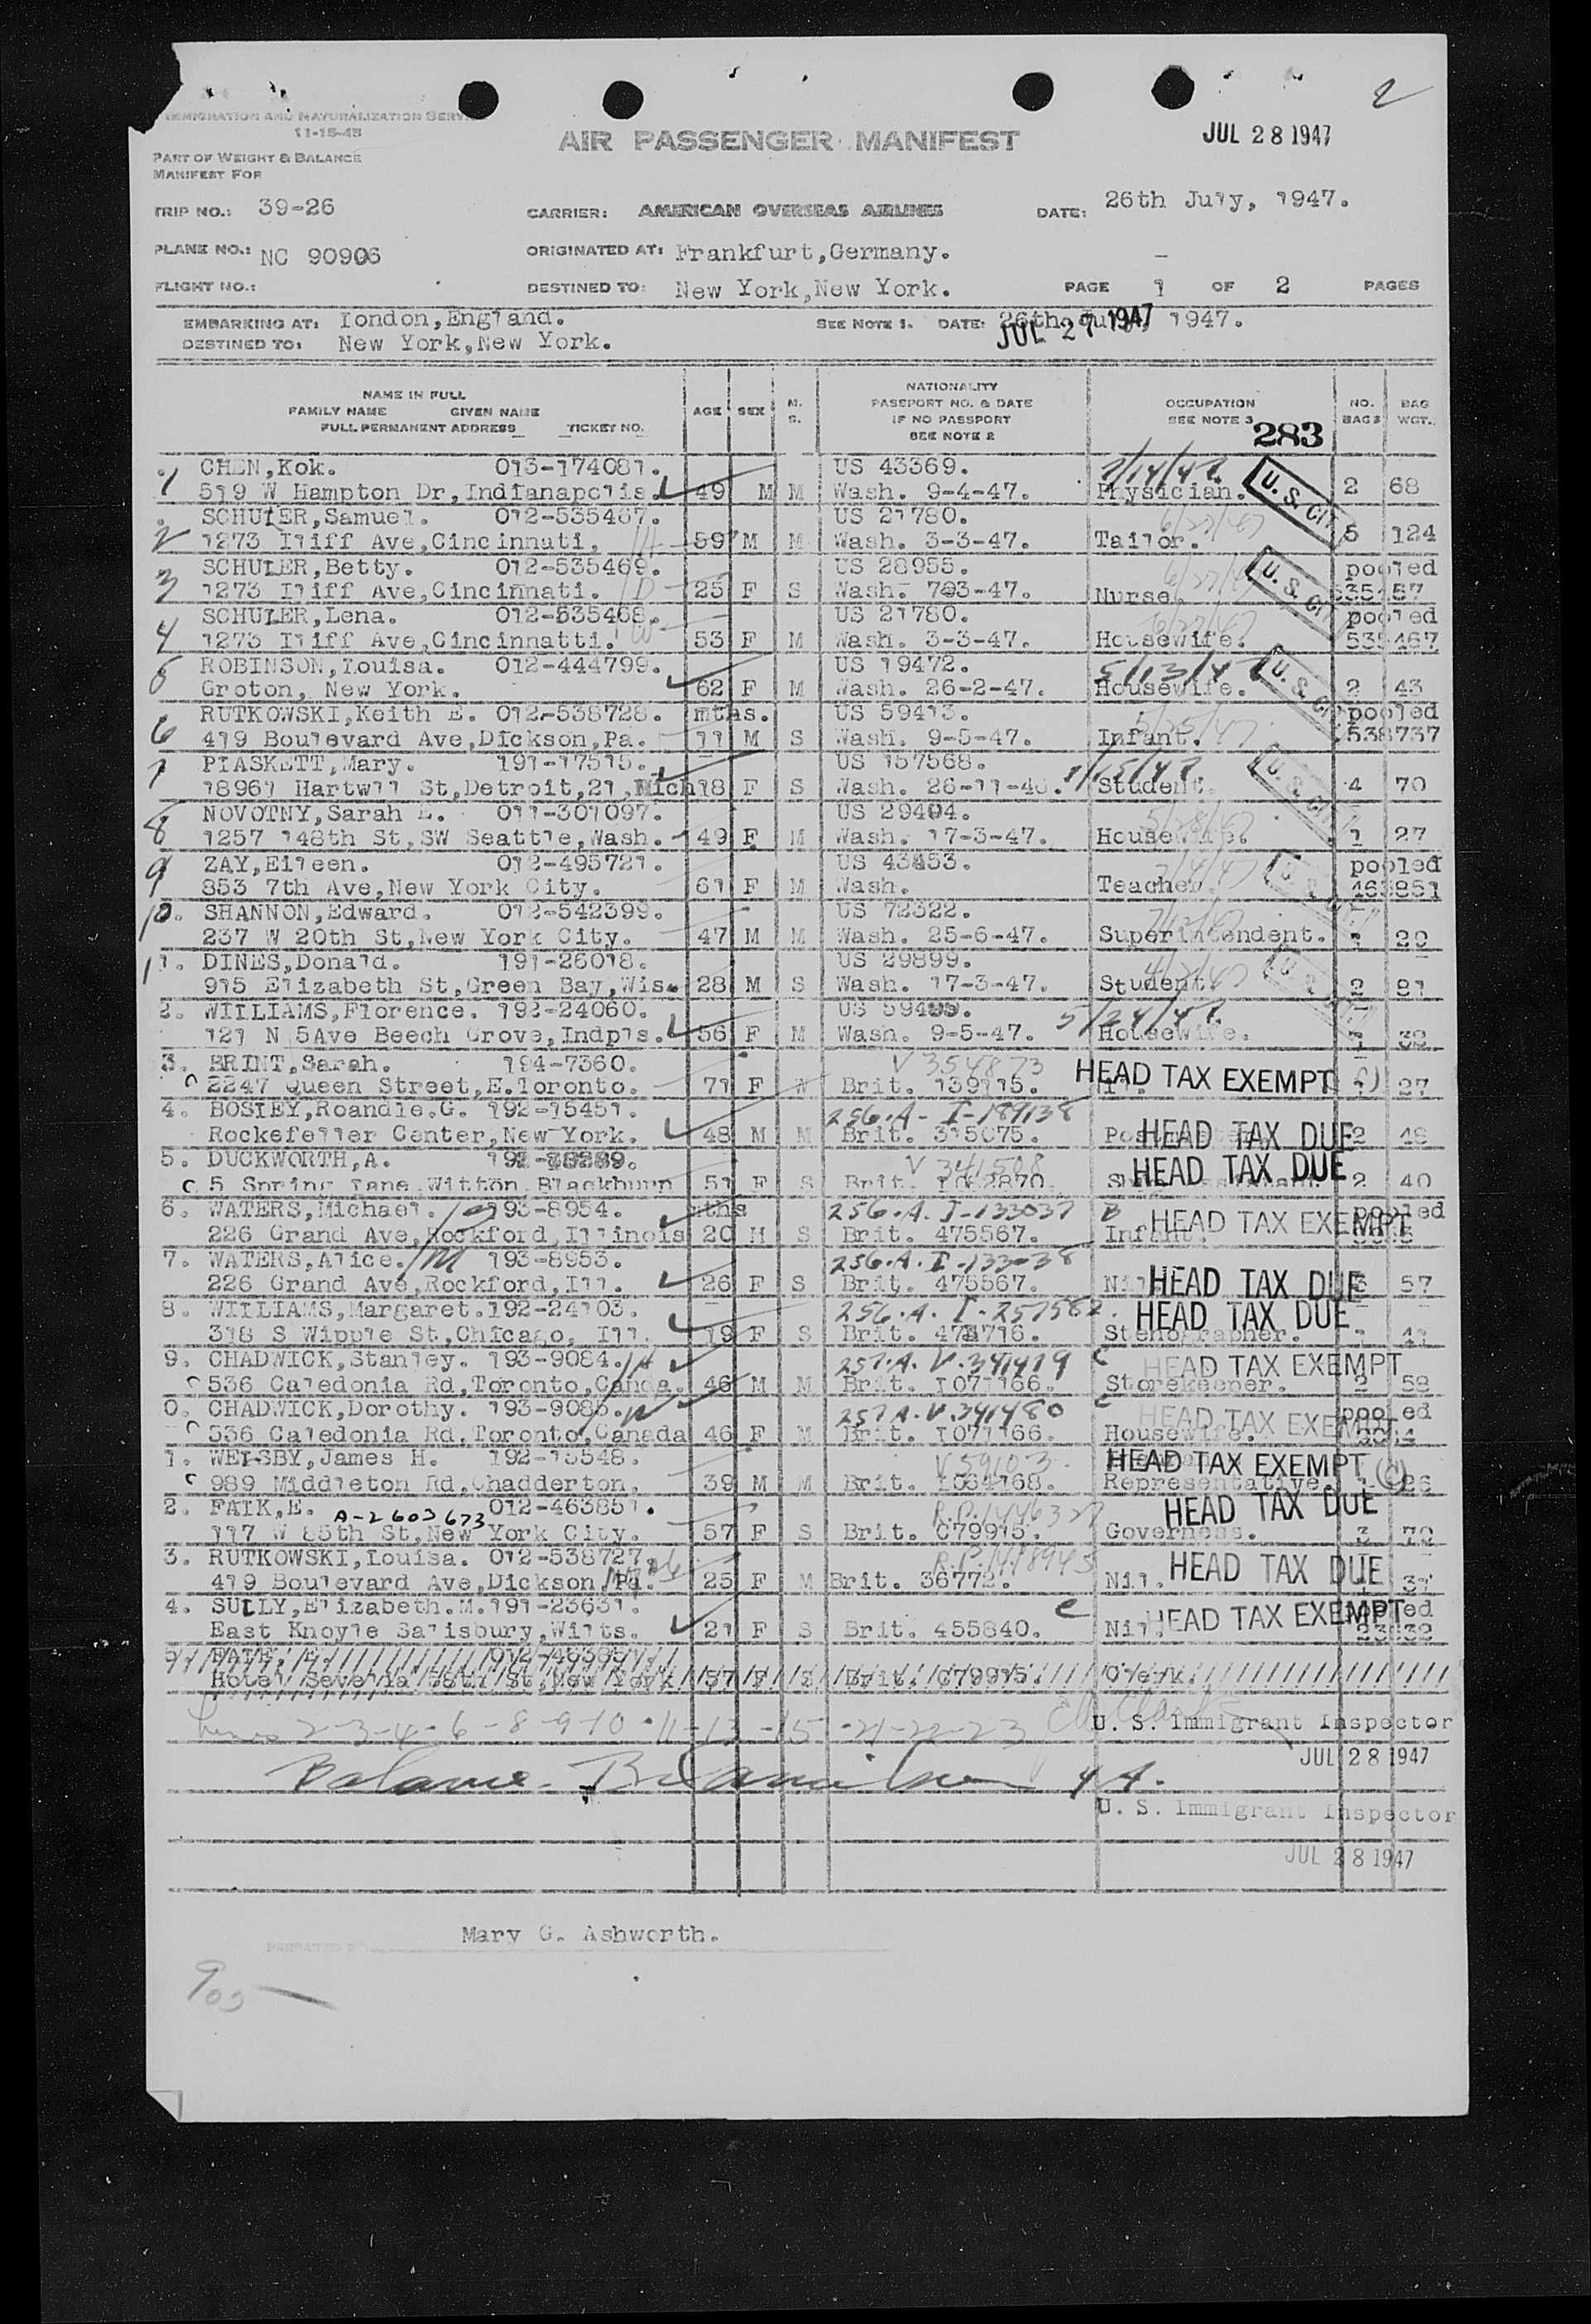 2
IMMIGRATION AND NATURALIZATION
11-15-45
AIR PASSENGER MANIFEST
JUL 28 1947
PART OF WEIGHT & BALANCE
MANIFEST FOR
TRIP NO.: 39-26
CARRIER: AMERICAN OVERSEAS AIRLINES
DATE: 26th July, 1947.
PLANE NO.: NC 90906
ORIGINATED AT: Frankfurt,Germany.
FLIGHT NO.:
DESTINED TO: New York,New York.
PAGE 1 OF 2 PAGES
EMBARKING AT: London,England.
SEE NOTE 1. DATE: 26th July 1947.
JUL 27 1947
DESTINED TO: New York,New York.
NAME IN FULL
FAMILY NAME GIVEN NAME
FULL PERMANENT ADDRESS TICKET NO.
AGE SEX M. S.
NATIONALITY
PASSPORT NO. & DATE
IF NO PASSPORT
SEE NOTE 2
OCCUPATION
SEE NOTE 3
283
NO. BAGS
BAG WGT.
1 CHEN,Kok. 013-174081. US 43369. 7/14/47
519 W Hampton Dr,Indianapolis. 49 M M Wash. 9-4-47. Physician. U.S. CIT 2 68
2 SCHULER,Samuel. 012-535467. US 21780. 6/27/47
1273 Iliff Ave,Cincinnati. H 59 M M Wash. 3-3-47. Tailor. 5 124
3 SCHULER,Betty. 012-535469. US 28955. 6/27/47 pooled
1273 Iliff Ave,Cincinnati. D 25 F S Wash. Nurse U.S. CIT
4 SCHULER,Lena. 012-535468. US 21780. 6/27/47 pooled
1273 Iliff Ave,Cincinnatti. W 53 F M Wash. 3-3-47. Housewife. 535467
5 ROBINSON,Louisa. 012-444799. US 19472. 5/13/47
Groton, New York. 62 F M Wash. 26-2-47. Housewife. U.S. CIT 2 43
6 RUTKOWSKI,Keith E. 012-538728. mths. US 59413. pooled
419 Boulevard Ave,Dickson,Pa. 11 M S Wash. 9-5-47. Infant. 538737
7 PLASKETT,Mary. 191-17515. US 157568. 1/15/47
18961 Hartwll St,Detroit,21,Mich 18 F S Wash. 26-11-46. Student. U.S. CIT 4 70
8 NOVOTNY,Sarah E. 011-301097. US 29404. 5/28/47
1257 148th St,SW Seattle,Wash. 49 F M Wash. 17-3-47. Housewife. 1 27
9 ZAY,Eileen. 012-495721. US 43853. 7/4/47 pooled
853 7th Ave,New York City. 61 F M Wash. Teacher. 463851
10. SHANNON,Edward. 012-542399. US 72322.
237 W 20th St,New York City. 47 M M Wash. 25-6-47. Superintendent. 1 29
11. DINES,Donald. 191-26018. US 29899.
915 Elizabeth St,Green Bay,Wis. 28 M S Wash. 17-3-47. Student. 2 81
2. WILLIAMS,Florence. 192-24060. US 5/24/47
121 N 5Ave Beech Grove,Indpls. 56 F M Wash. 9-5-47. Housewife. 1 39
3. BRINT,Sarah. 194-7360. V 354873
2247 Queen Street,E.Toronto. 71 F W Brit. 139115. HEAD TAX EXEMPT 1 27
4. BOSLEY,Roandle.G. 192-15451. 256.A- I-189138
Rockefeller Center,New York. 48 M M Brit. 315075. HEAD TAX DUE 2 48
5. DUCKWORTH,A. V 341508
c 5 Spring Lane Witton Blackburn 51 F S Brit. HEAD TAX DUE 2 40
6. WATERS,Michael. 193-8954. mths 256.A.I-133037 pooled
226 Grand Ave,Rockford,Illinois 20 M S Brit. 475567. Infant. HEAD TAX EXEMPT
7. WATERS,Alice. M 193-8953. 256.A.I-133038
226 Grand Ave,Rockford,Ill. 26 F S Brit. 475567. Nil HEAD TAX DUE 3 57
8. WILLIAMS,Margaret.192-24103. 256.A. I-257582. HEAD TAX DUE
318 S Wipple St,Chicago, Ill. 19 F S Brit. Stenographer. 1 41
9. CHADWICK,Stanley. 193-9084. H 257.A. V.341479 C HEAD TAX EXEMPT
c 536 Caledonia Rd,Toronto,Canda. 46 M M Brit. L071166. Storekeeper. 2 58
0. CHADWICK,Dorothy. 193-9085. W 257A.V.341480 C pooled
c 536 Caledonia Rd,Toronto,Canada 46 F M Brit. L071166. Housewife. HEAD TAX EXEMPT
1. WELSBY,James H. 192-15548. V59103. HEAD TAX EXEMPT (C)
c 989 Middleton Rd,Chadderton, 39 M M Brit. L064168. Representative. 1 26
2. FALK,E. 012-463851. R.P. HEAD TAX DUE
A-2603673
117 W 85th St,New York City. 57 F S Brit. C79915. Governess. 3 72
3. RUTKOWSKI,Louisa. 012-538727. R.P. HEAD TAX DUE
419 Boulevard Ave,Dickson,Pa. 25 F M Brit. 36772. Nil. 37
4. SULLY,Elizabeth.M.191-23631. C HEAD TAX EXEMPT
East Knoyle Salisbury,Wilts. 21 F S Brit. 455840. Nil. 23632
5. 57 F S Brit. C79915. Clerk.
Lines 2-3-4-6-8-9-10-11-13-15-21-22-23
U. S. Immigrant Inspector
JUL 28 1947
Balance
U. S. Immigrant Inspector
JUL 28 1947
PREPARED BY Mary G. Ashworth.